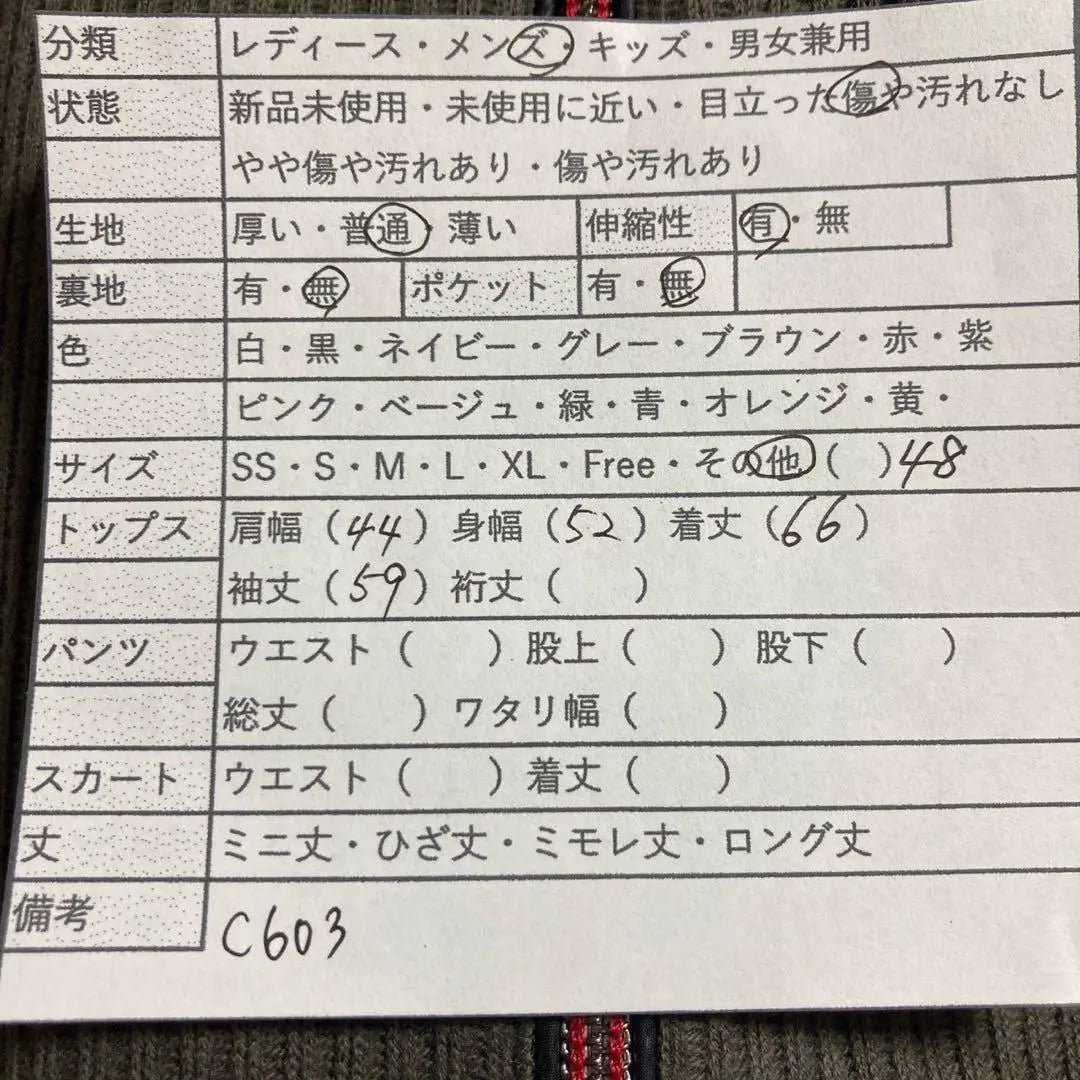 分類 レディース・メンズ・キッズ・男女兼用
状態 新品未使用・未使用に近い・目立った傷や汚れなし
やや傷や汚れあり・傷や汚れあり
生地 厚い・普通・薄い 伸縮性 有・無
裏地 有・無 ポケット 有・無
色 白・黒・ネイビー・グレー・ブラウン・赤・紫
ピンク・ベージュ・緑・青・オレンジ・黄・
サイズ SS・S・M・L・XL・Free・その他( )48
トップス 肩幅(44) 身幅(52) 着丈(66)
袖丈(59) 裄丈( )
パンツ ウエスト( ) 股上( ) 股下( )
総丈( ) ワタリ幅( )
スカート ウエスト( ) 着丈( )
丈 ミニ丈・ひざ丈・ミモレ丈・ロング丈
備考 C603